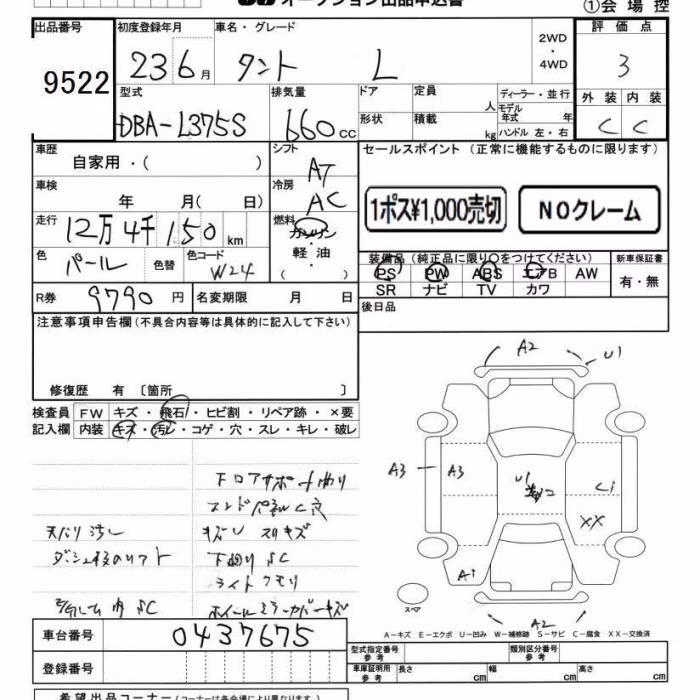 オークション出品申込書 ①会場控
出品番号 初度登録年月 車名・グレード 2WD・4WD 評価点
9522 23 6月 タント L 3
型式 排気量 ドア 定員 人 ディーラー・並行 外装 内装
DBA-L375S 660cc 形状 積載 kg モデル年式 年 ハンドル 左・右 C C
車歴 自家用・( ) シフト AT セールスポイント (正常に機能するものに限ります)
車検 年 月( 日) 冷房 AC 1ポス¥1,000売切 NOクレーム
走行 12万4千150km 燃料 ガソリン 軽油 ( )
色 パール 色替 色コード W24 装備品(純正品に限り○をつけてください) 新車保証書
PS PW ABS エアB AW 有・無
SR ナビ TV カワ
R券 9790円 名変期限 月 日 後日品
注意事項申告欄(不具合内容等は具体的に記入して下さい)
修復歴 有 〔箇所 〕
検査員 FW キズ・飛石・ヒビ割・リペア跡・×要
記入欄 内装 キズ・汚レ・コゲ・穴・スレ・キレ・破レ
A2 U1
A3 A3 U1 Ci
XX
Ai
A2
天バリ汚レ キズU スリキズ
下廻りSC
ライトクモリ
スペア
A-キズ E-エクボ U-凹み W-補修跡 S-サビ C-腐食 XX-交換済
車台番号 0437675
登録番号
型式指定番号 参考 類別区分番号 参考
車庫証明用 参考 長さ cm 幅 cm 高さ cm
希望出品コーナー (コーナーは各会場により異なります。)